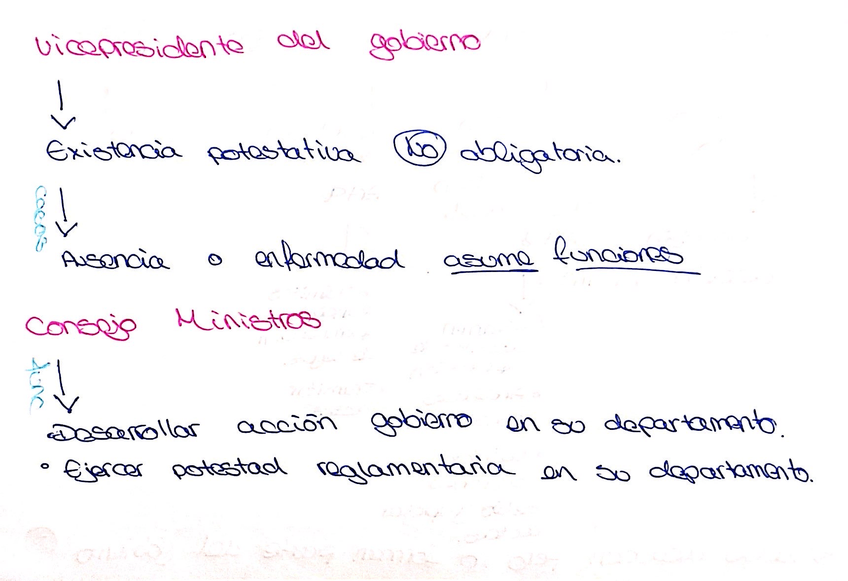 vicepresidente del gobierno
Existencia potestativa NO obligatoria.
Ausencia o enfermedad asume funciones
Consejo Ministros
Desarrollar acción gobierno en su departamento.
• Ejercer potestad reglamentaria en su departamento.